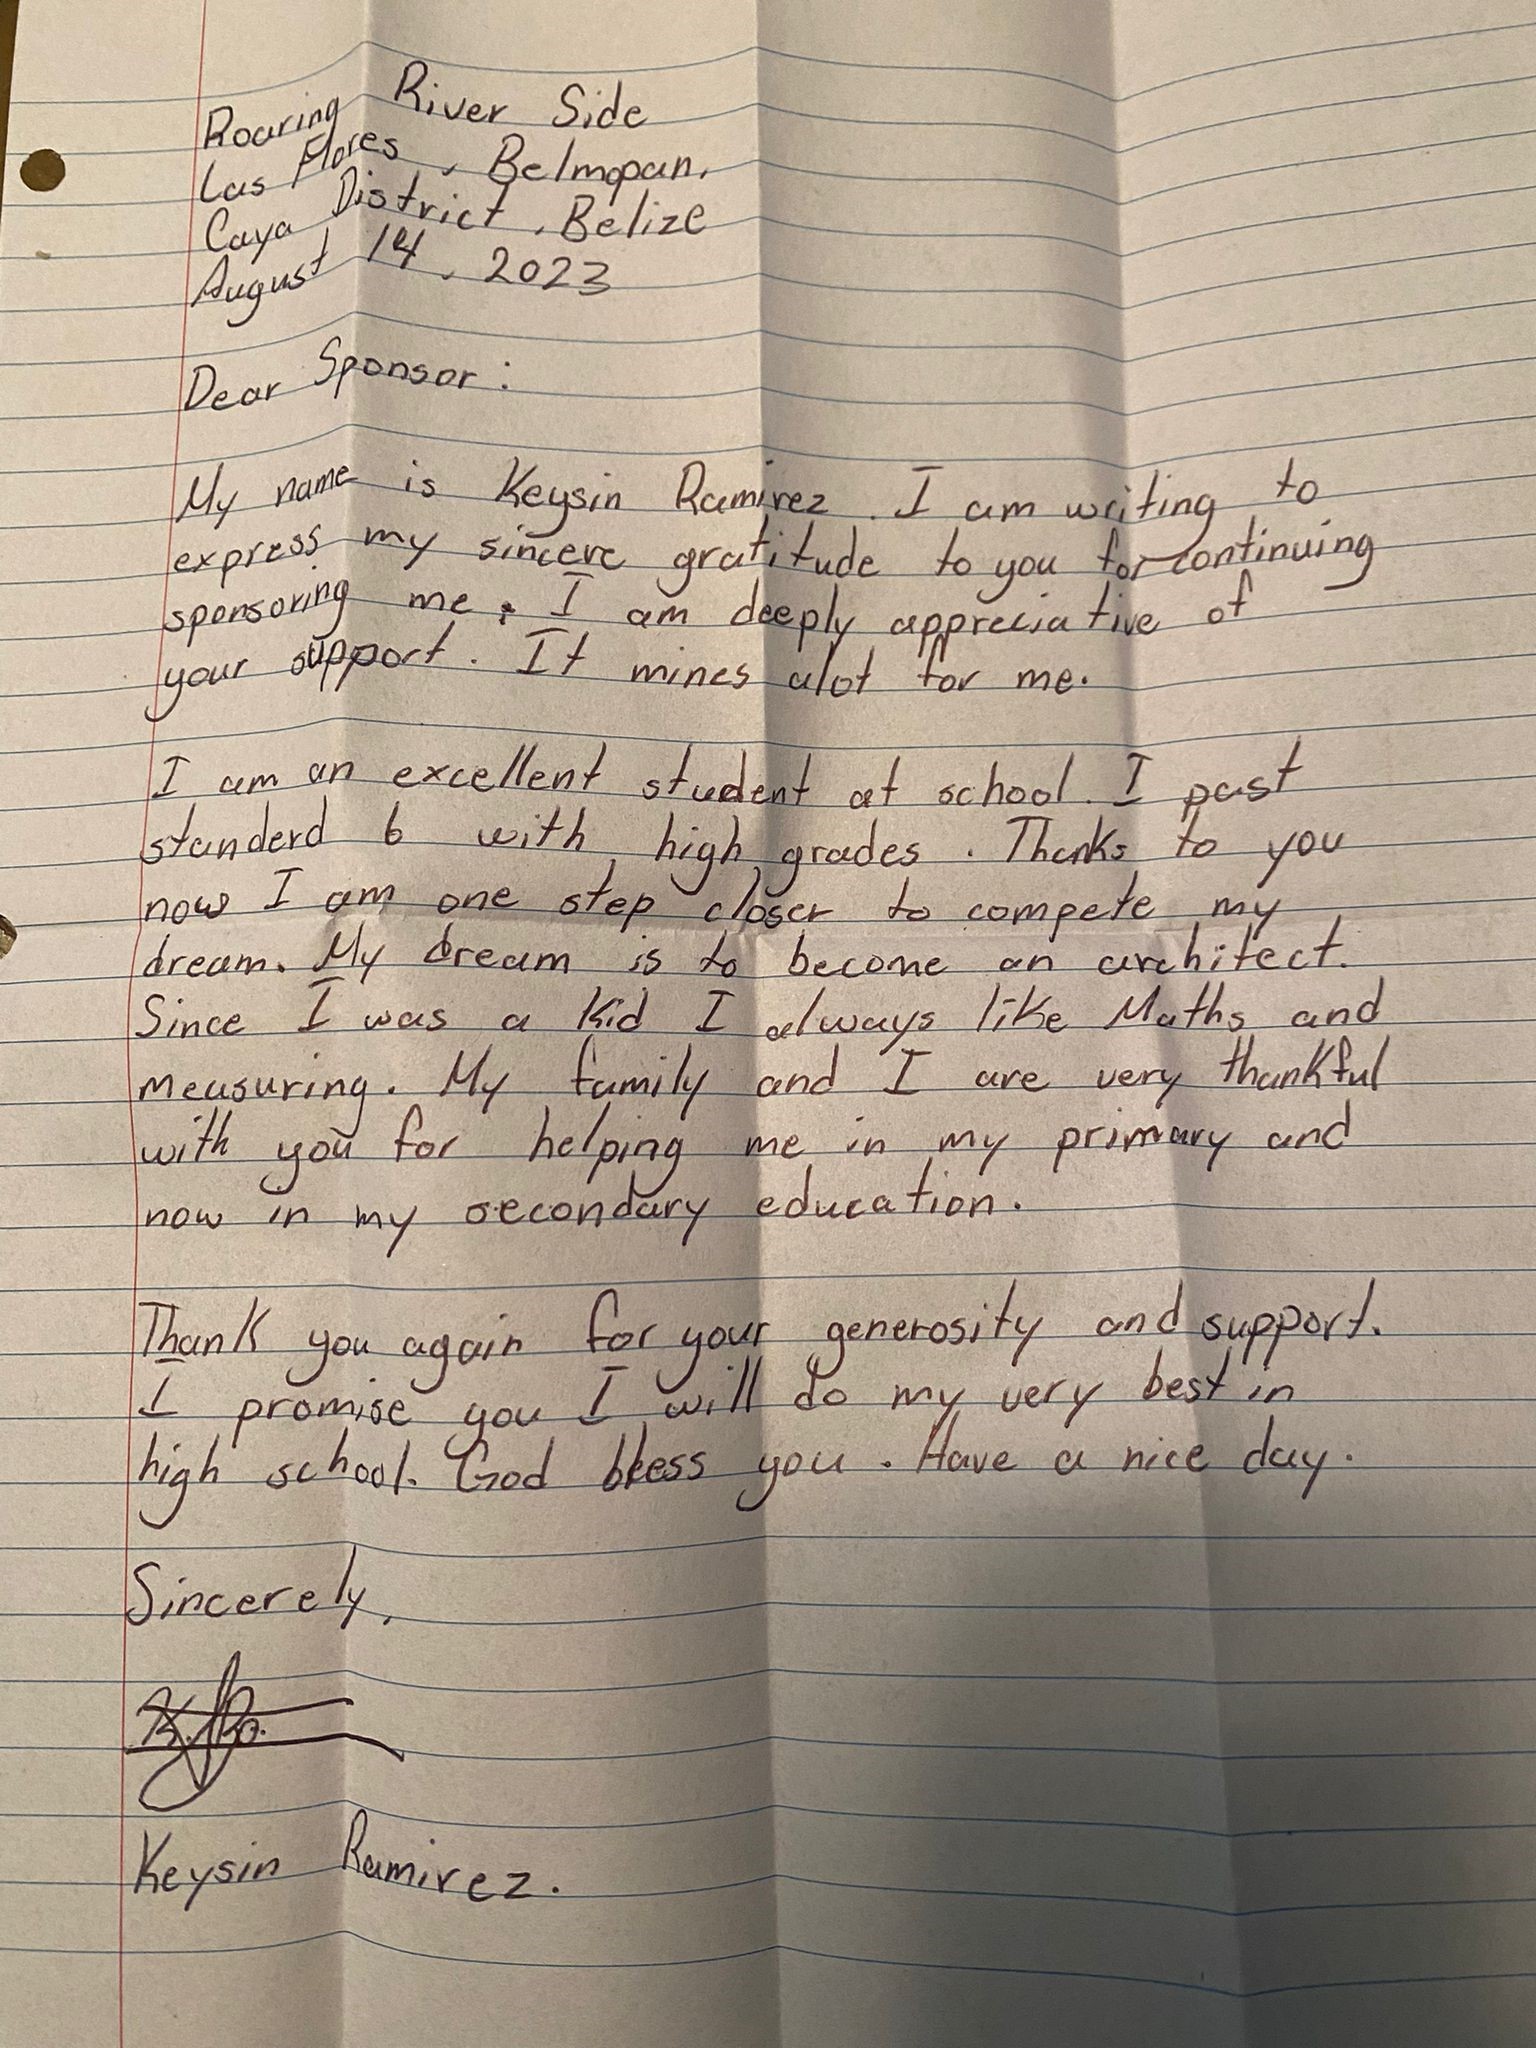 Roaring River Side
Las Flores, Belmopan,
Caya District, Belize
August 14, 2023
Dear Sponsor:
My name is Keysin Ramirez. I am writing to
express my sincere gratitude to you for continuing
sponsoring me. I am deeply appreciative of
your support. It mines alot for me.
I am an excellent student at school. I past
standerd 6 with high grades. Thanks to you
now I am one step closer to compete my
dream. My dream is to become an architect.
Since I was a kid I always like Maths and
measuring. My family and I are very thankful
with you for helping me in my primary and
now in my secondary education.
Thank you again for your generosity and support.
I promise you I will do my very best in
high school. God bless you. Have a nice day.
Sincerely,
Keysin Ramirez.